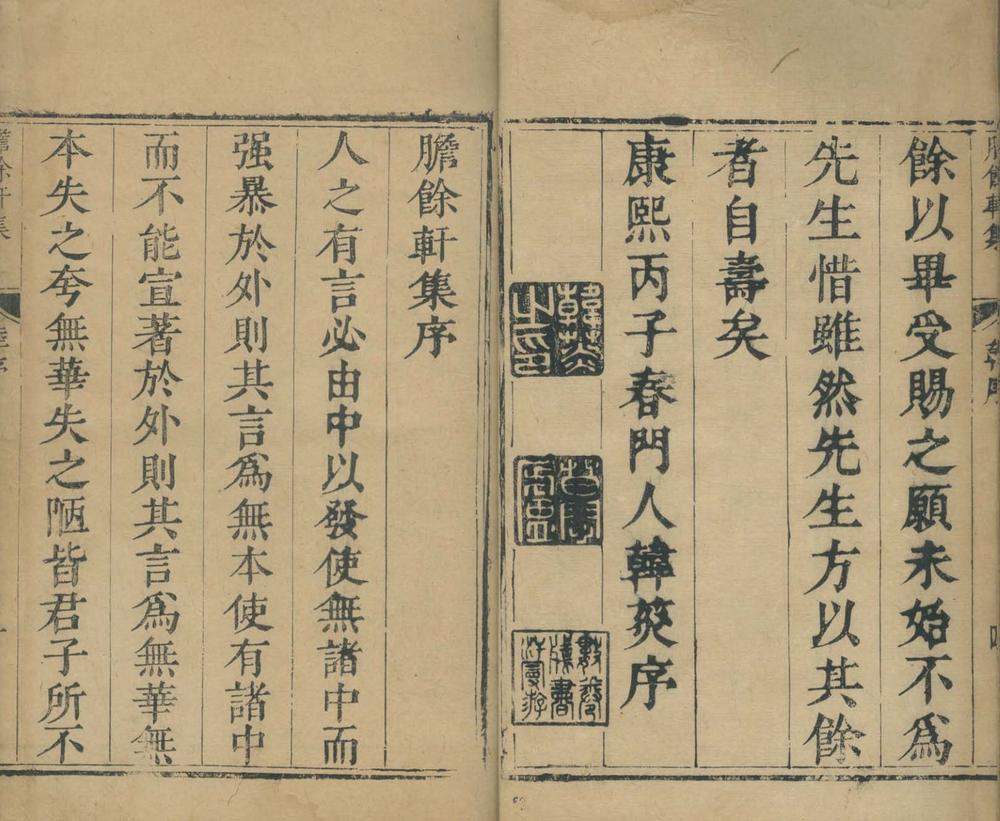 膽餘軒集 韓序
餘以畢受賜之願未始不爲
先生惜雖然先生方以其餘
者自壽矣
康熙丙子春門人韓菼序
韓菼之印
膽餘軒集序
人之有言必由中以發使無諸中而
强暴於外則其言爲無本使有諸中
而不能宣著於外則其言爲無華無
本失之夸無華失之陋皆君子所不
膽餘軒集